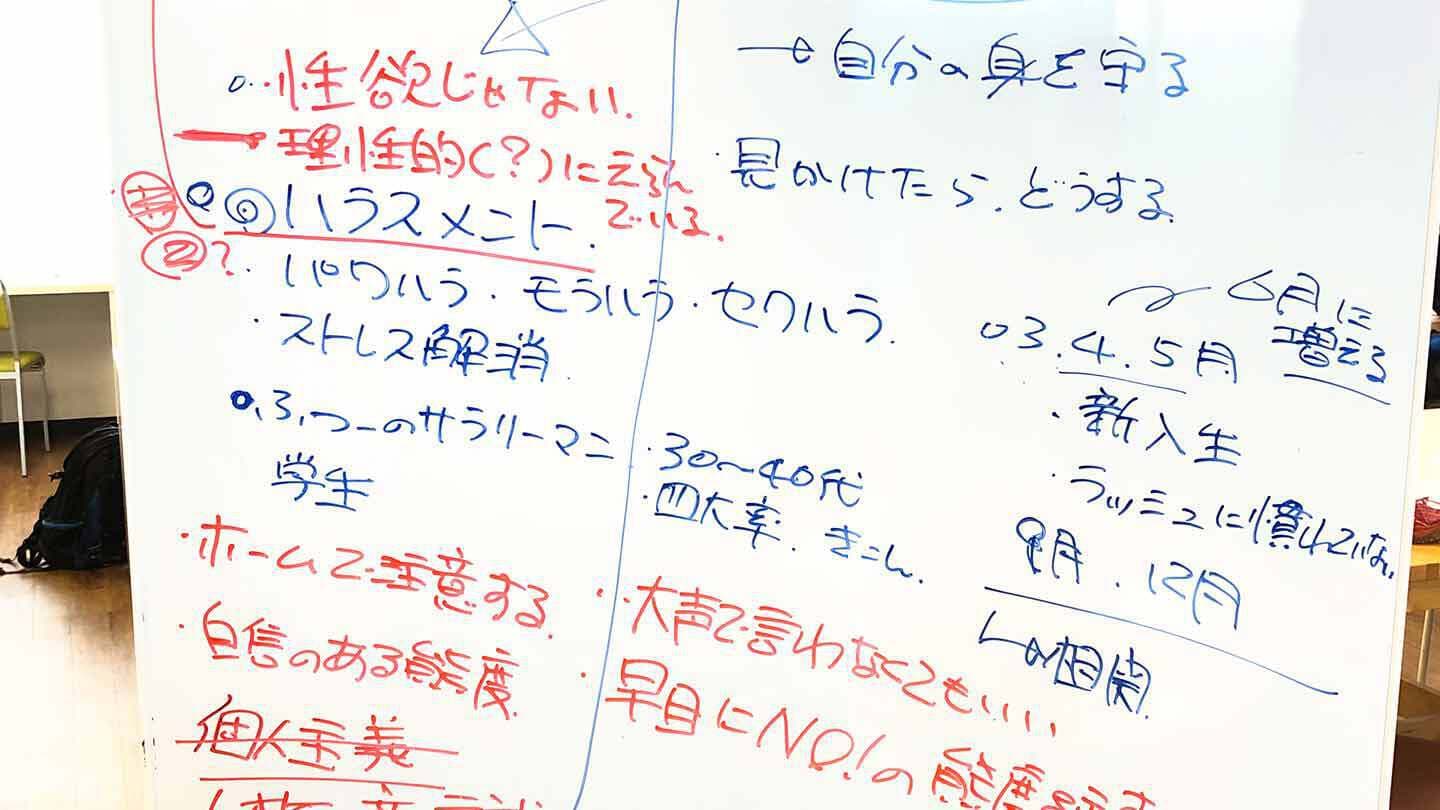 性欲じゃない.
理性的(?)にえらん
でいる.
◎ハラスメント.
②?
・パワハラ・モラハラ・セクハラ.
・ストレス解消.
ふつーのサラリーマン
学生
・ホームで注意する.
・自信のある態度.
個人主義
→自分の身を守る
・見かけたら、どうする.
6月に
増える
○3.4.5月
・新入生
・ラッシュに慣れていない.
・30〜40代
・四大卒.きこん.
9月.12月
・大声で言わなくてもいい
・早目にNO!の態度を示す